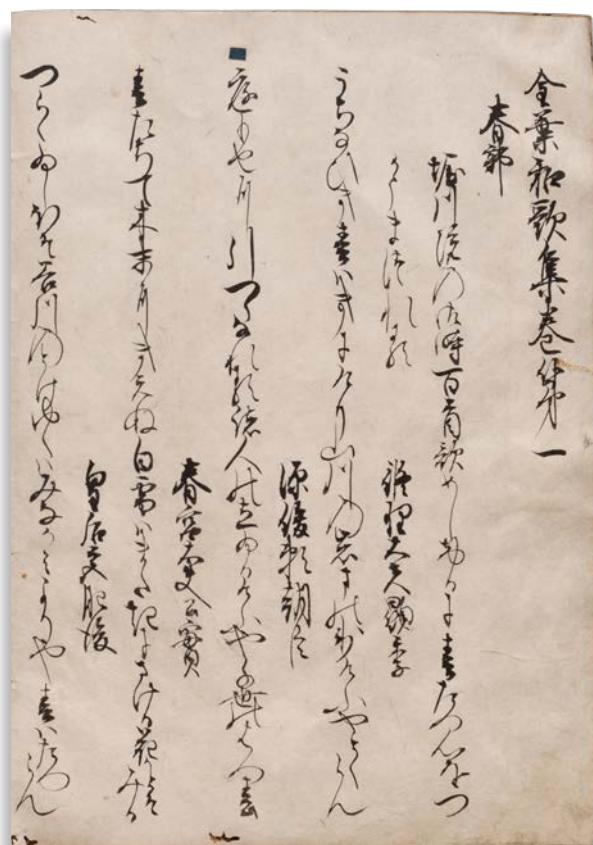 金葉和歌集巻第一
春部
堀川院の御時百首歌めしけるに春たつ心をつ
かうまつれる　修理大夫顕季
うちなひき春はきにけり山川の岩まの氷けふやとくらん
源俊頼朝臣
庭もせに引つらなれる諸人の立ゐるけふや千世のはつ春
春宮大夫公實
春たちて木末にきえぬ白雪はまたきにさける花かとそみる
皇后宮肥後
つらゝゐしほそ谷川のとけゆくはみなかみよりや春はたつらん